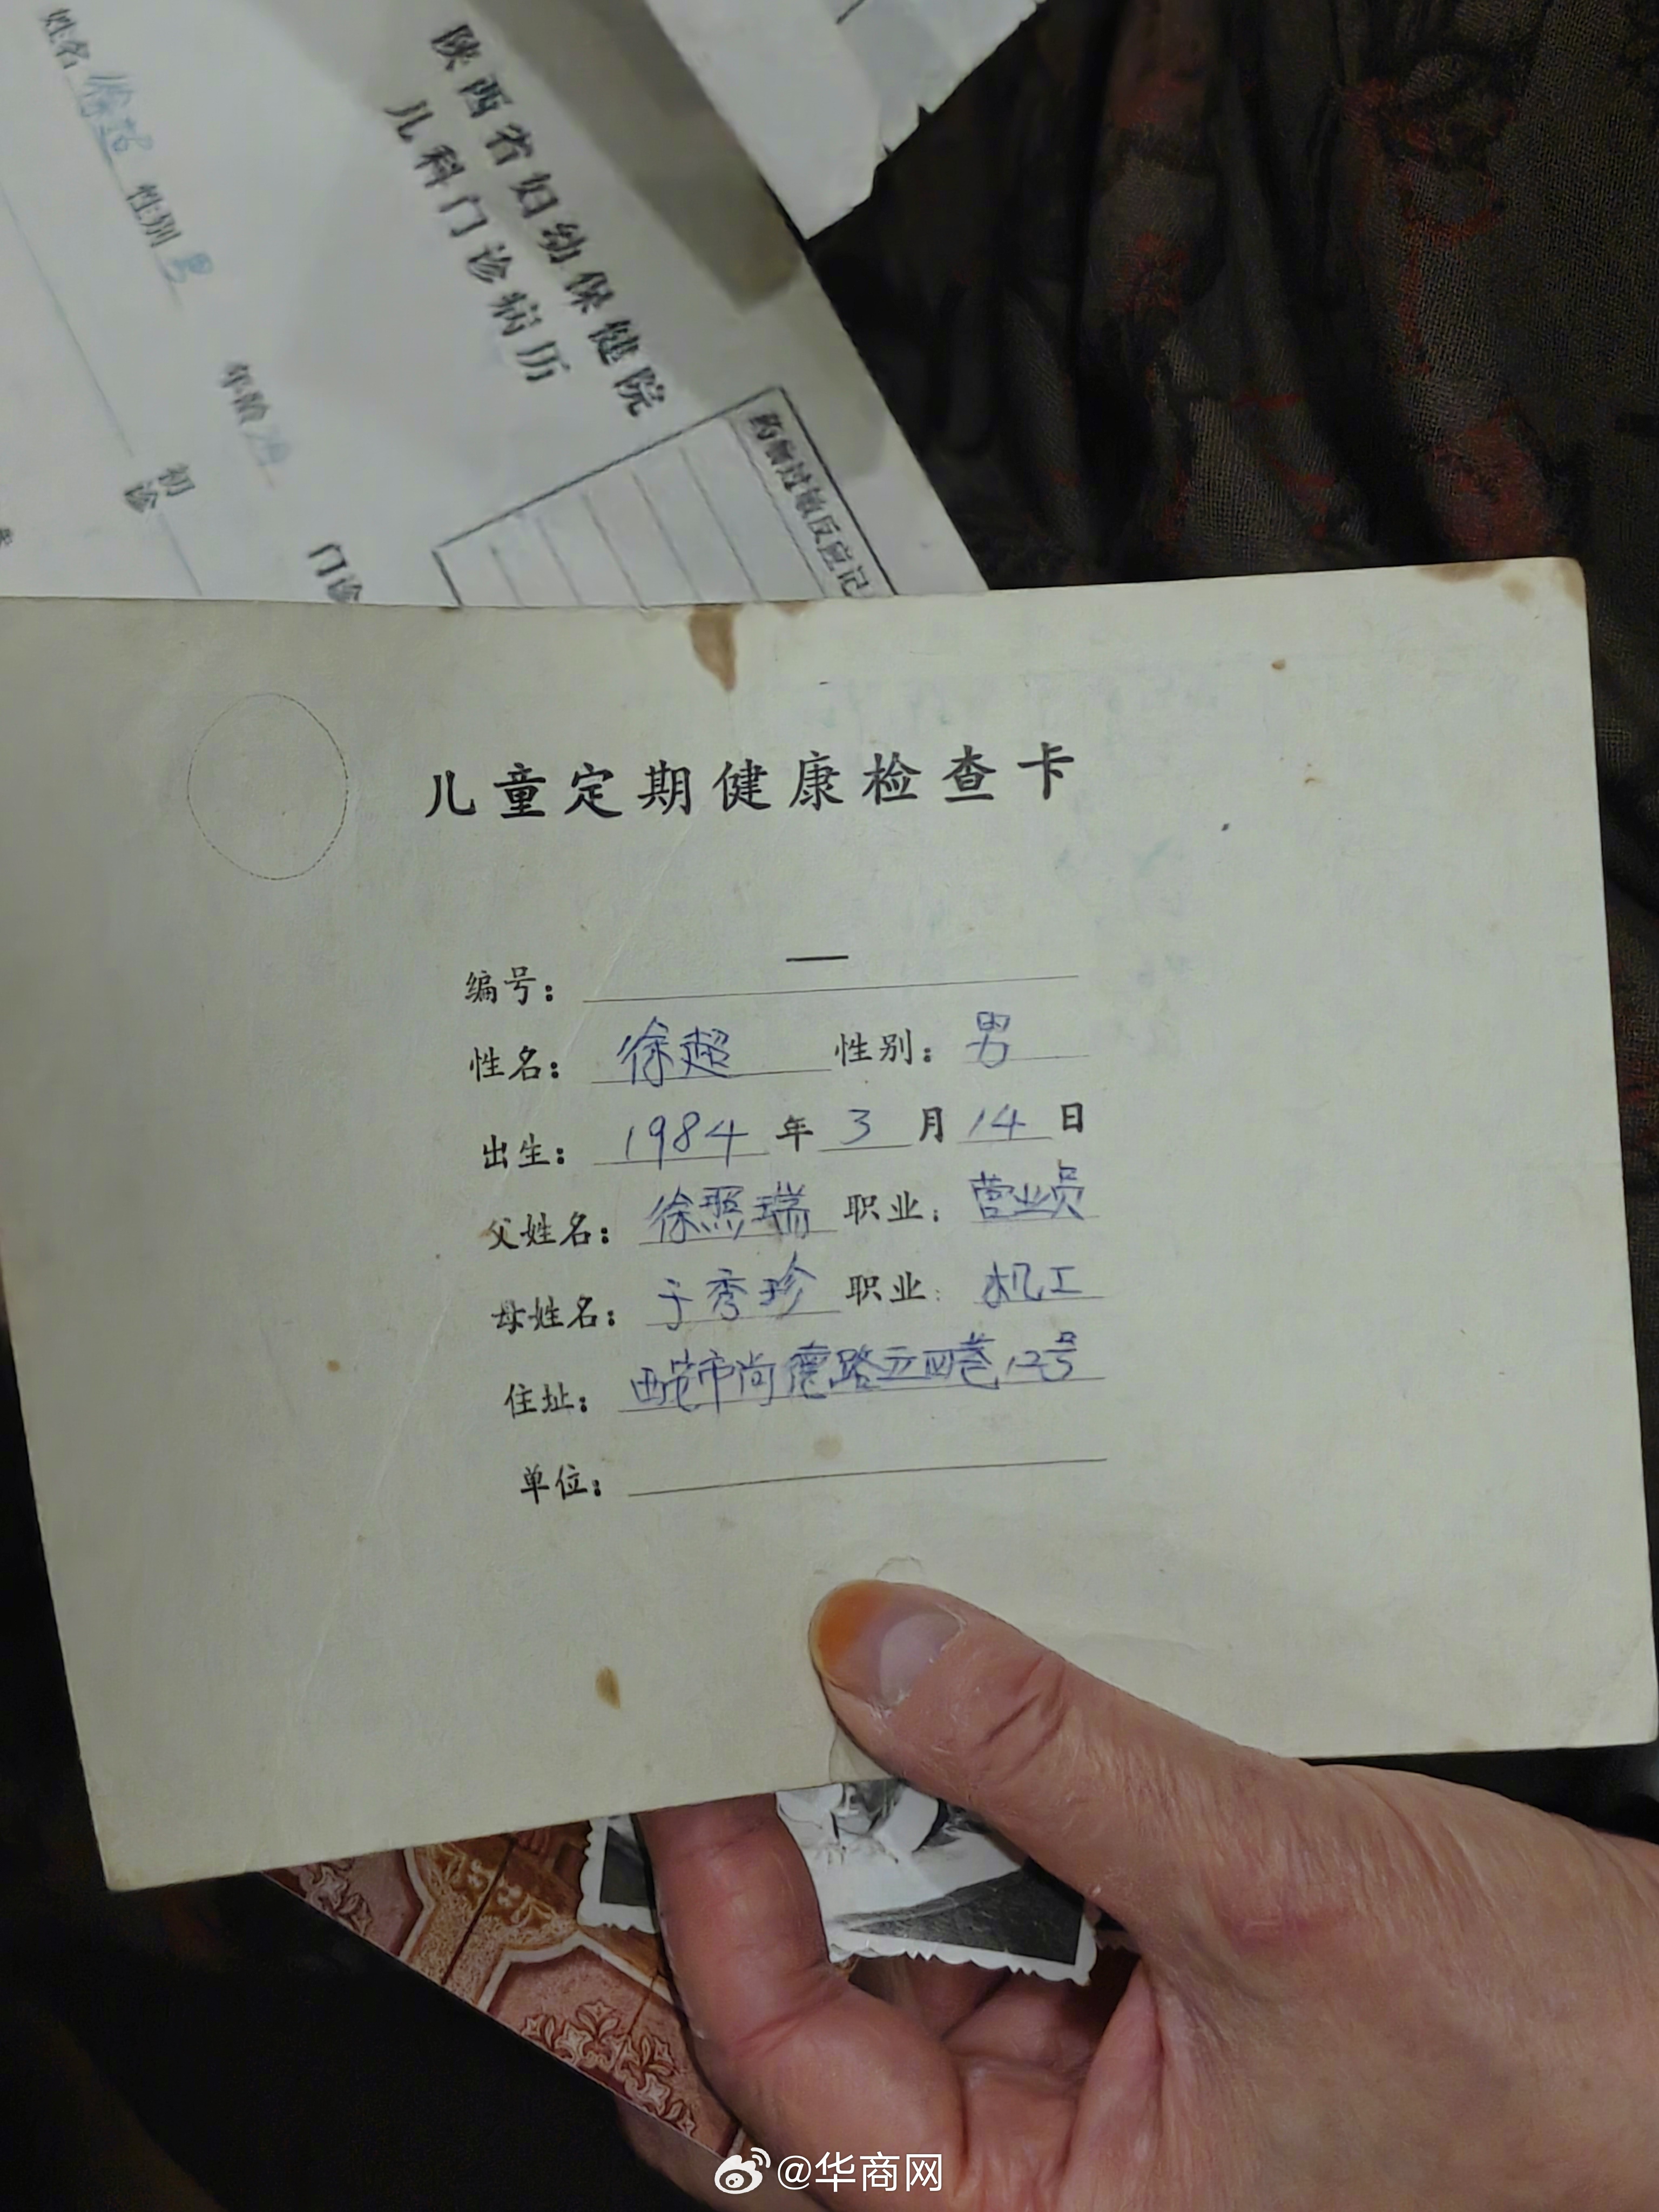 陕西省妇幼保健院
儿科门诊病历
姓名 徐超 性别 男 年龄
初诊
门诊
药物过敏反应记
儿童定期健康检查卡
编号：一
姓名：徐超 性别：男
出生：1984年3月14日
父姓名：徐照瑞 职业：营业员
母姓名：于秀珍 职业：机工
住址：西安市尚德路五四巷12号
单位：
@华商网